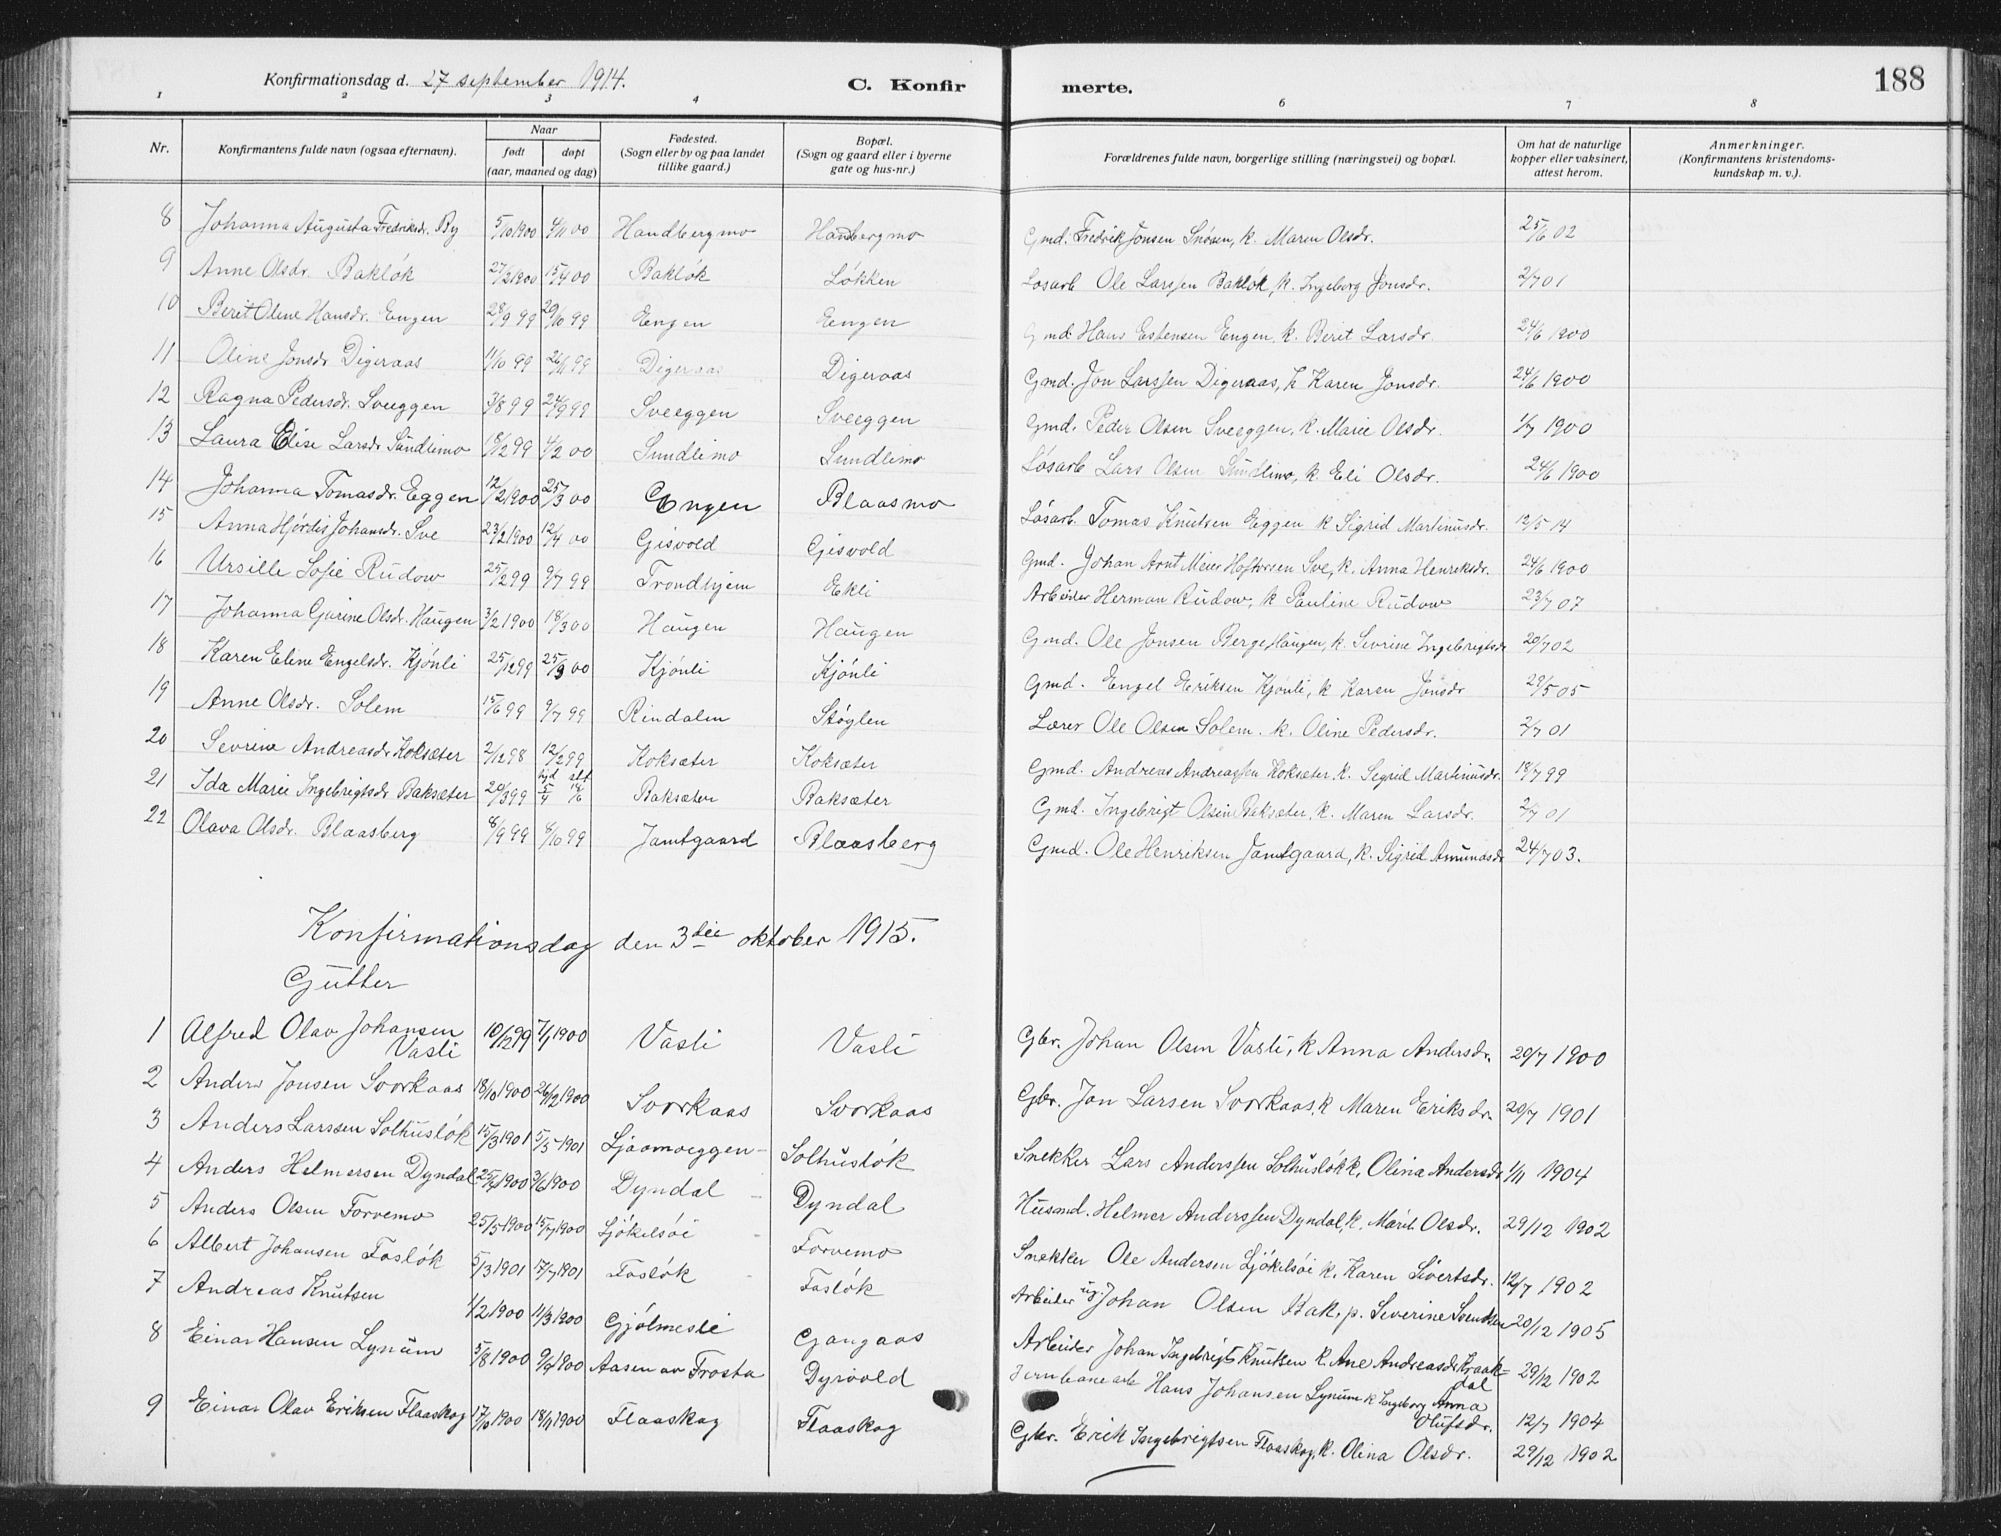 Konfirmationsdag d. 27 september 1914. C. Konfir merte. 188
1 2 3 4 6 7 8
Nr. Konfirmantens fulde navn (ogsaa efternavn). Naar født døpt (aar, maaned og dag) Fødested. (Sogn eller by og paa landet tillike gaard.) Bopæl. (Sogn og gaard eller i byerne gate og hus-nr.) Forældrenes fulde navn, borgerlige stilling (næringsvei) og bopæl. Om hat de naturlige kopper eller vaksinert, attest herom. Anmerkninger. (Konfirmantens kristendomskundskap m. v.).
8 Johanna Augusta Fredriksdr. By 5/10 1900 4/11 00 Handbergmo Handbergmo Gmd. Fredrik Jonsen Snösen, k. Maren Olsdr. 25/6 02
9 Anne Olsdr. Baklök 27/2 1900 15/4 00 Baklök Løkken Løsarb Ole Larssen Baklök, k. Ingeborg Jonsdr. 2/7 01
10 Berit Oline Hansdr. Engen 28/9 99 29/10 99 Engen Engen Gmd. Hans Estensen Engen, k. Berit Larsdr. 24/6 1900
11 Oline Jonsdr Digeraas 11/10 99 26/11 99 Digeraas Digeraas Gmd. Jon Larssen Digeraas, k Karen Jonsdr. 24/6 1900
12 Ragna Pedersdr. Sveeggen 3/8 99 24/9 99 Sveeggen Sveeggen Gmd. Peder Olsen Sveeggen, k. Marie Olsdr. 1/7 1900
13 Laura Elise Larsdr Sundlimo 18/12 99 4/2 00 Sundlimo Sundlimo Løsarb Lars Olsen Sundlimo, k. Eli Olsdr. 24/6 1900
14 Johanna Tomasdr. Eggen 12/2 1900 25/3 00 Engen Blaasmo Løsarb. Tomas Knutsen Eggen k Sigrid Martinusdr. 12/5 14
15 Anna Hjördis Johansdr. Sve 23/2 1900 12/4 00 Gisvold Gisvold Gmd. Johan Arnt Meier Hoftorsen Sve, k. Anna Henriksdr. 24/6 1900
16 Ursille Sofie Rudow 25/2 99 9/7 99 Trondhjem Ekli Arbeider Herman Rudow, k Pauline Rudow 23/7 07
17 Johanna Gurine Olsdr. Haugen 3/2 1900 18/3 00 Haugen Haugen Gmd. Ole Jonsen Berge, Haugen, k. Sevrine Ingebrigtsdr 20/7 02
18 Karen Eline Engelsdr. Kjönli 25/12 99 25/3 00 Kjönli Kjönli Gmd. Engel Eriksen Kjönli, k Karen Jonsdr 29/5 05
19 Anne Olsdr. Solem 15/6 99 9/7 99 Rindalen Støylen Lærer Ole Olsen Solem. k. Oline Pedersdr. 2/7 01
20 Sevrine Andreasdr Koksæter 2/12 98 12/2 99 Koksæter Koksæter Gmd. Andreas Andreassen Koksæter, k. Sigrid Martinusdr. 18/7 99
21 Ida Marie Ingebrigtsdr Baksæter 20/3 99 hjd 5/4 st 18/6 Baksæter Baksæter Gmd. Ingebrigt Olsen Baksæter, k. Maren Larsdr. 2/7 01
22 Olava Olsdr. Blaasberg 8/9 99 8/10 99 Jamtgaard Blaasberg Gmd. Ole Henriksen Jamtgaard, k. Sigrid Amundsdr 24/7 03.
Konfirmationsdag den 3die oktober 1915.
Gutter
1 Alfred Olav Johansen Vasli 10/12 99 7/1 1900 Vasli Vasli Gbr. Johan Olsen Vasli, k Anna Andersdr. 29/7 1900
2 Anders Jonsen Svorkaas 18/10 1900 26/12 1900 Svorkaas Svorkaas Gbr. Jon Larsen Svorkaas, k Maren Eriksdr. 20/7 1901
3 Anders Larssen Solhuslök 15/3 1901 5/5 1901 Ljaamoeggen Solhuslök Snekker Lars Anderssen Solhuslökk, Olina Andersdr 1/11 1904
4 Anders Helmersen Dyndal 25/4 1900 3/6 1900 Dyndal Dyndal Husmd. Helmer Anderssen Dyndal, k. Marit Olsdr. 29/12 1902
5 Anders Olsen Forvemo 25/5 1900 15/7 1900 Ljökelsöi Forvemo Snekker Ole Andersen Ljökelsöi k, Karen Sivertsdr. 12/7 1902
6 Albert Johansen Fosløk 5/3 1901 17/7 1901 Fosløk Fosløk Arbeider ug. Johan Olsen Bak, p. Severine Svendsen 20/12 1905
7 Andreas Knutsen 1/2 1900 11/3 1900 Gjölmesli Gangaas Arbeider Johan Ingebrigts Knutsen k. Ane Andreasdr Kraakdal 29/12 1902
8 Einar Hansen Lynum 5/8 1900 9/9 1900 Aasen av Frosta Dyrvold Jernbanearb Hans Johansen Lynum k Ingeborg Anna Olufsdr. 12/7 1904
9 Einar Olav Eriksen Flaaskog 17/9 1900 18/11 1900 Flaaskog Flaaskog Gbr. Erik Ingebrigtsen Flaaskog, k. Olina Olsdr. 29/12 1902